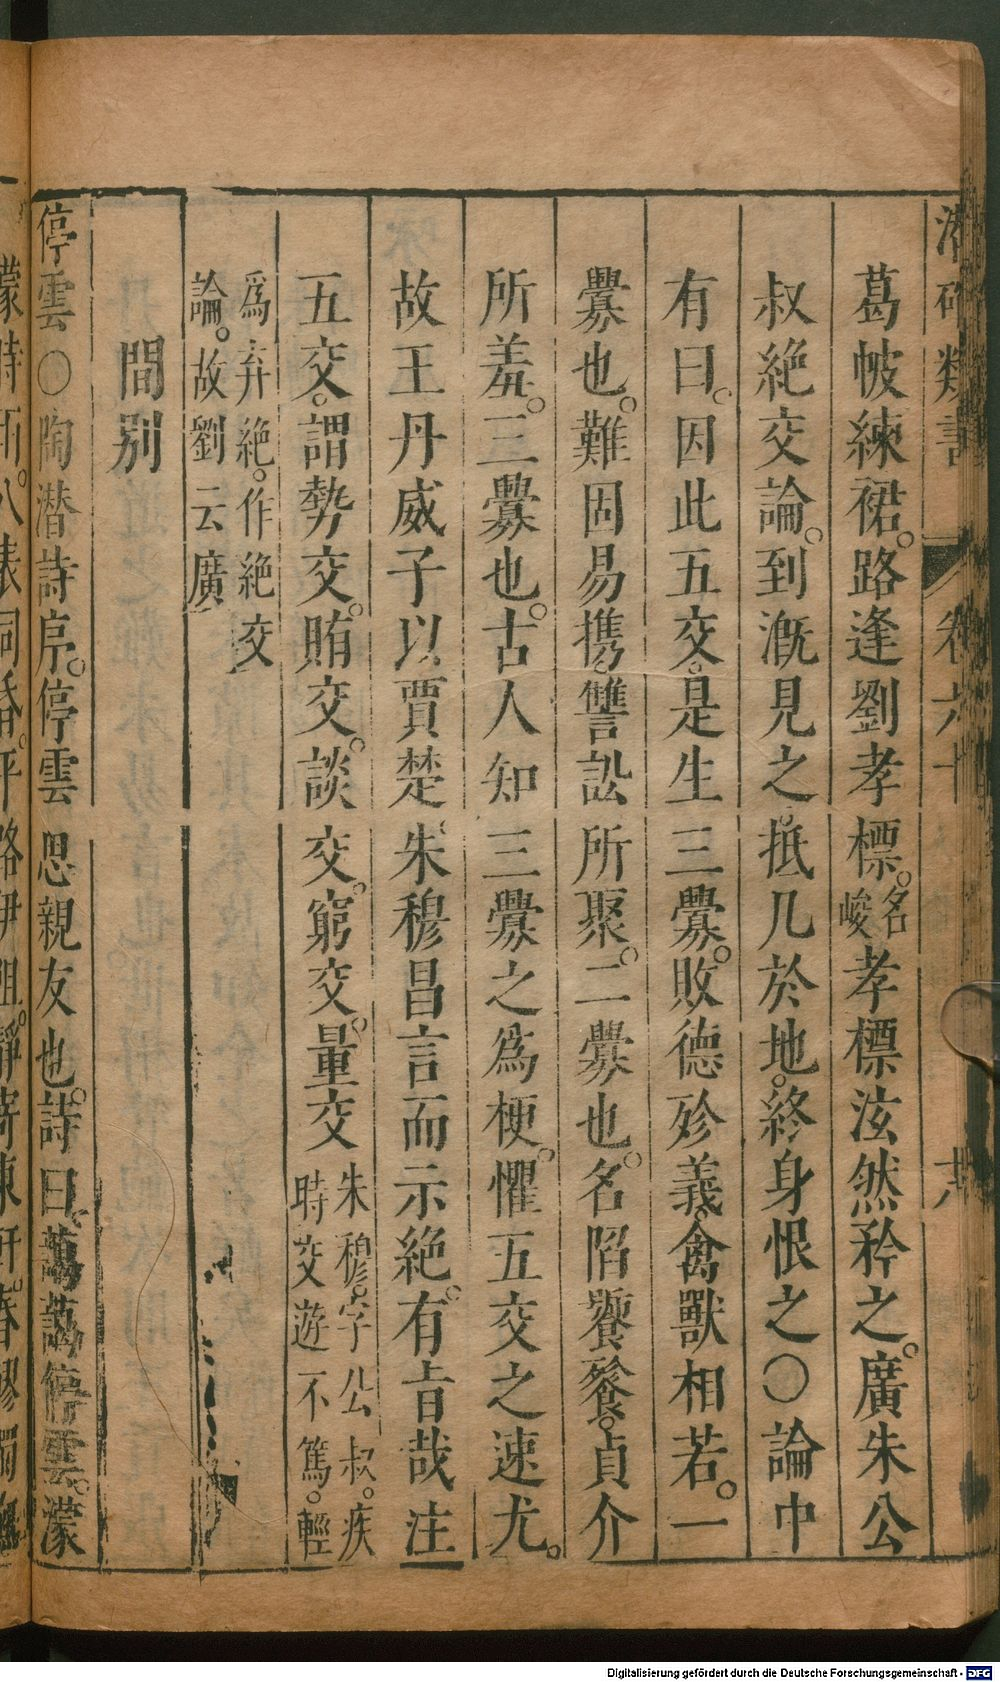 類書 卷六十 十八
葛帔練裙。路逢劉孝標。名峻孝標泫然矜之。廣朱公
叔絶交論。到溉見之。抵几於地。終身恨之〇論中
有曰。因此五交。是生三釁。敗德殄義。禽獸相若。一
釁也。難固易携。讐訟所聚。二釁也。名陷饕餮。貞介
所羞。三釁也。古人知三釁之爲梗。懼五交之速尤。
故王丹威子以賈楚。朱穆昌言而示絶。有旨哉注
五交。謂勢交。賄交。談交。窮交。量交
朱穆。字公叔。疾
時交遊不篤。輕
爲弃絶。作絶交
論。故劉云廣
間别
停雲〇陶潜詩序。停雲思親友也。詩曰藹藹停雲。濛
濛時雨。八表同昏。平路伊阻。靜寄東軒。春醪獨
Digitalisierung gefördert durch die Deutsche Forschungsgemeinschaft - DFG